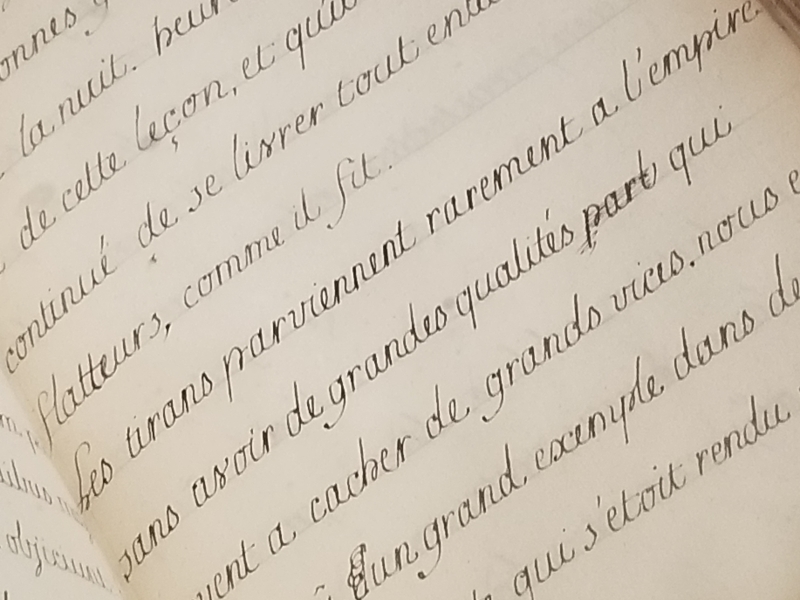 la nuit.
de cette leçon, et qu'il
continué de se livrer tout
flatteurs, comme il fit.
Les tirans parviennent rarement a l'empire
sans avoir de grandes qualités part qui
vent a cacher de grands vices. nous
d'un grand exemple dans
qui s'etoit rendu
objiciunt